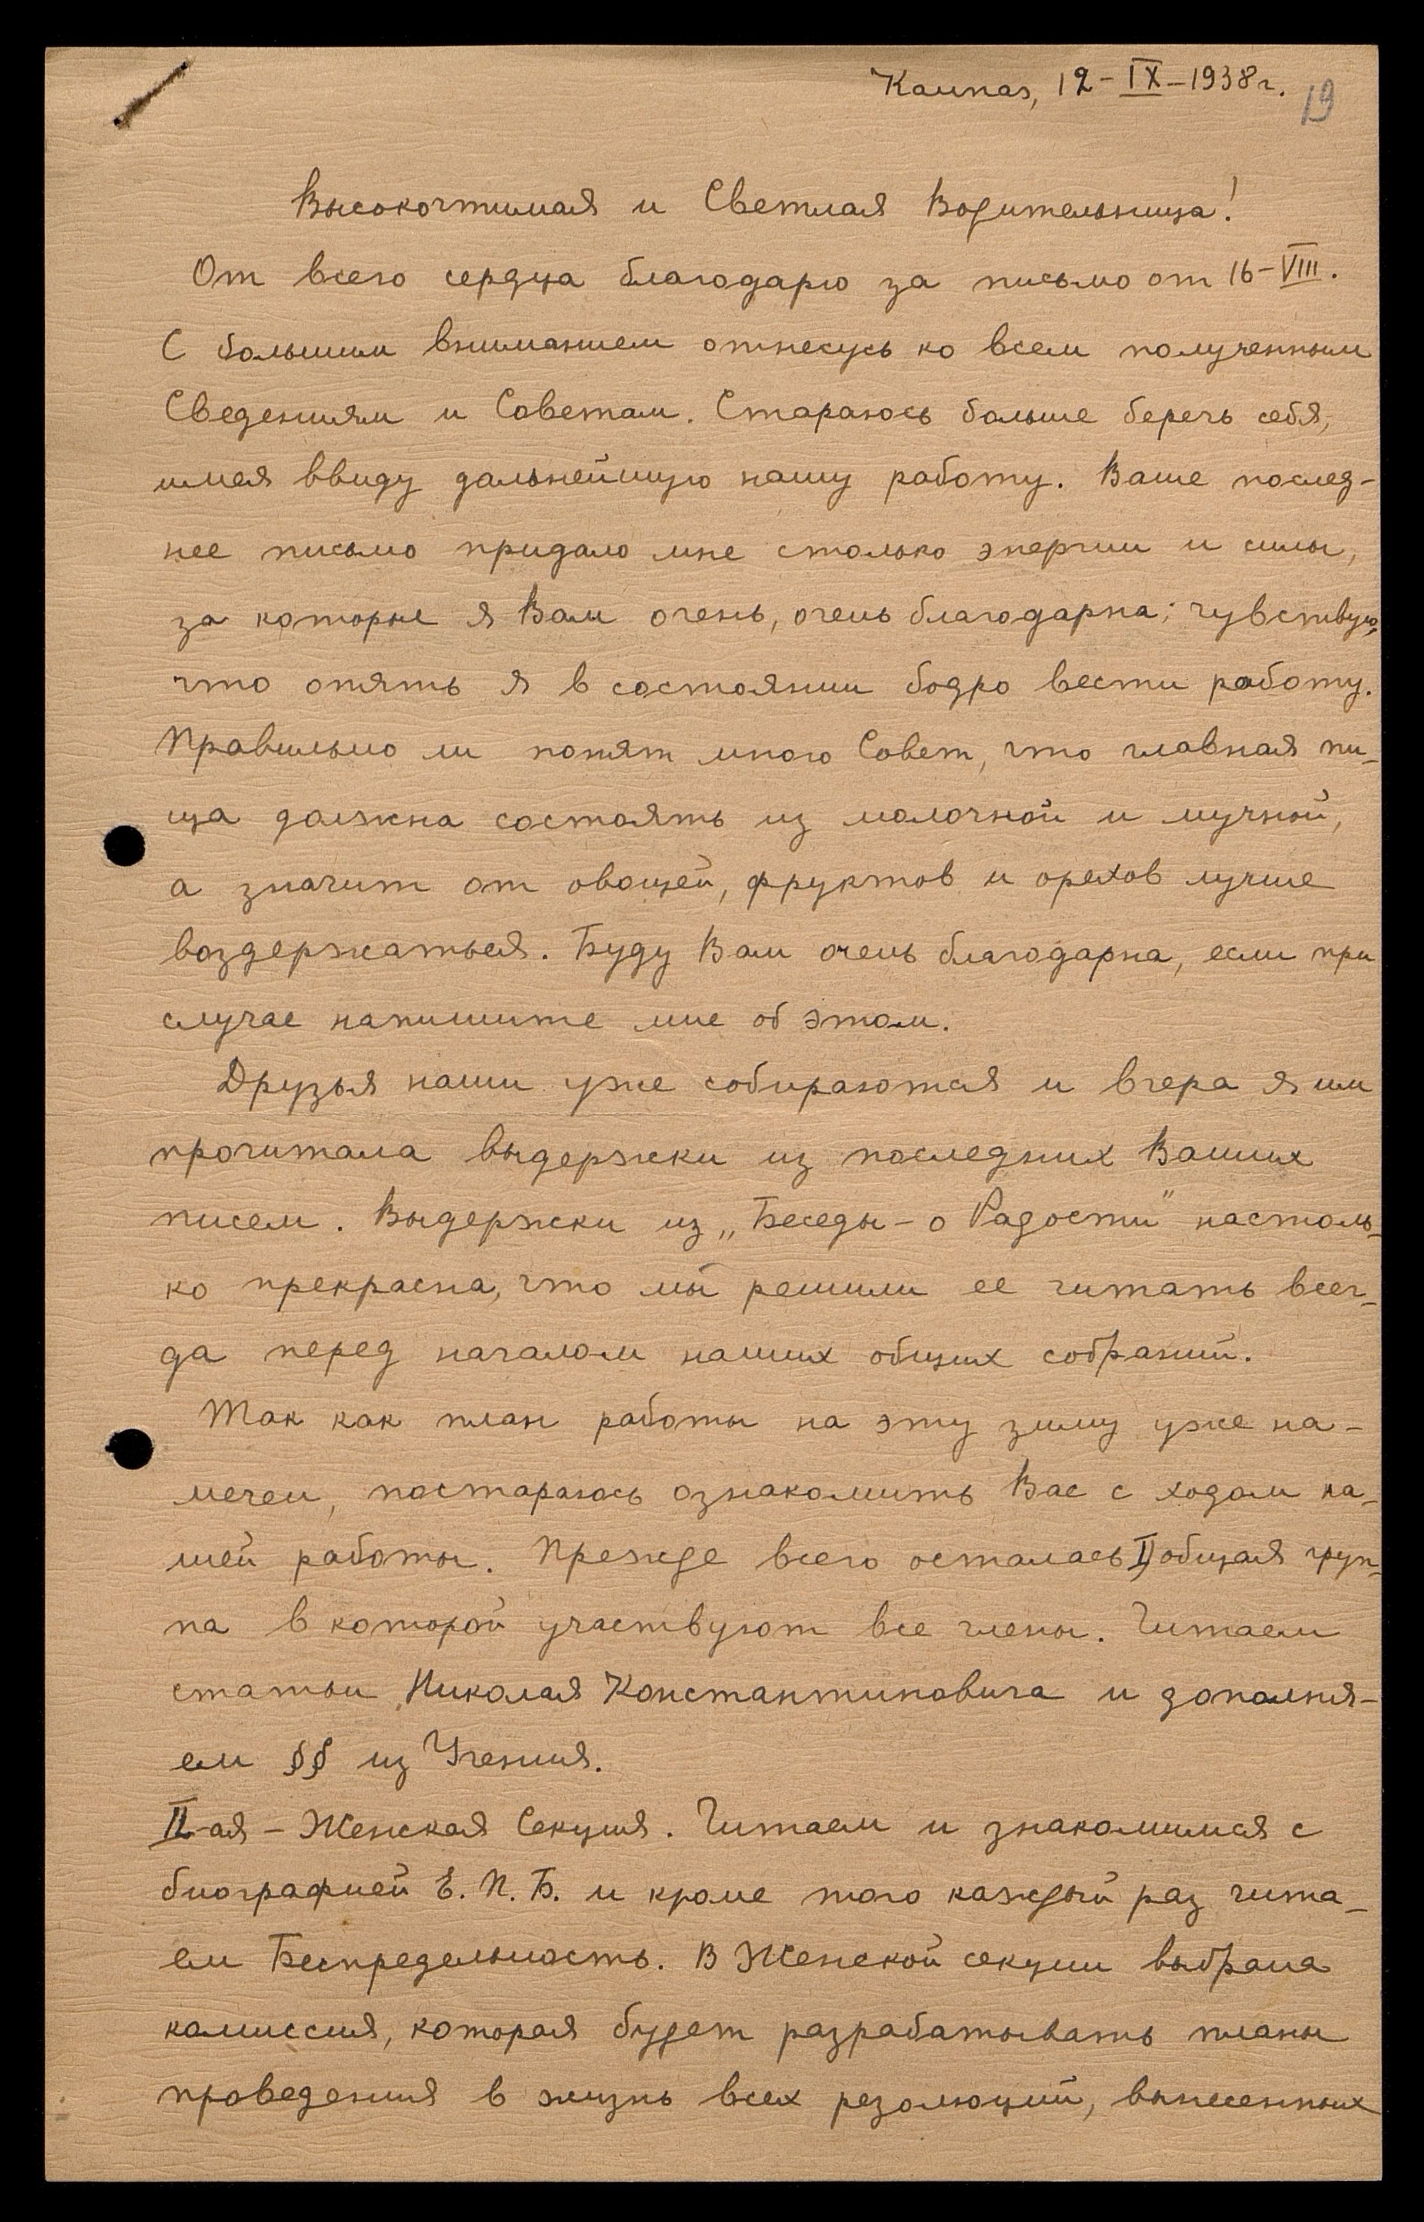 Kaunas, 12-IX-1938г.
19
Высокочтимая и Светлая Водительница!
От всего сердца благодарю за письмо от 16-VIII.
С большим вниманием отнесусь ко всем полученным
Сведениям и Советам. Стараюсь больше беречь себя,
имея ввиду дальнейшую нашу работу. Ваше послед-
нее письмо придало мне столько энергии и силы,
за которые я Вам очень, очень благодарна; чувствую,
что опять я в состоянии бодро вести работу.
Правильно ли понят мною Совет, что главная пи-
ща должна состоять из молочной и мучной,
а значит от овощей, фруктов и орехов лучше
воздержаться. Буду Вам очень благодарна, если при
случае напишите мне об этом.
Друзья наши уже собираются и вчера я им
прочитала выдержки из последних Ваших
писем. Выдержки из „Беседы - о Радости" настоль-
ко прекрасна, что мы решили ее читать всег-
да перед началом наших общих собраний.
Так как план работы на эту зиму уже на-
мечен, постараюсь ознакомить Вас с ходом на-
шей работы. Прежде всего осталась I) общая груп-
па в которой участвуют все члены. Читаем
статьи Николая Константиновича и дополня-
ем §§ из Учения.
II-ая - Женская Секция. Читаем и знакомимся с
биографией Е. П. Б. и кроме того каждый раз чита-
ем Беспредельность. В Женской секции выбрана
комиссия, которая будет разрабатывать планы
проведения в жизнь всех резолюций, вынесенных